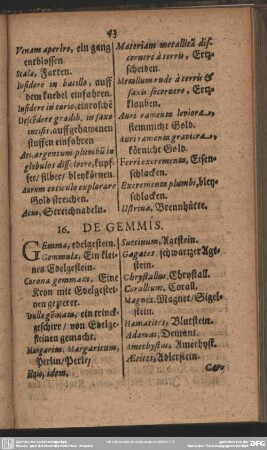 43
Venam aperire, ein gang
entblossen.
Scala, Farten.
Insidere in bacillo, auff
dem knebel einfahren.
Insidere in corio, einroschē
Descēdere gradib. in saxo
incisis, auffgehawenen
stuffen einfahren
Aes, argentum plumbū in
globulos discutere, kupf-
fer/ silber/ bleykörnen.
Aurum coticulo explorare
Gold streichen.
Acus, Streichnadeln.
Materiam metallicā dis-
cernere à terris, Ertz-
scheiden.
Metallum rude à terris &
saxis secernere, Ertz-
klauben.
Auri ramenta leviora,
flemmicht Gold.
Auri ramenta graviora,
körnicht Gold.
Ferri excrementa, Eisen-
schlacken.
Excrementa plumbi, bley-
schlacken.
Ustrina, Brennhütte.
16. DE GEMMIS.
GEmma, edelgestein.
Gemmula, Ein klei-
nes Edelgestein.
Corona gemmata, Eine
Kron mit Edelgestei-
nen gezieret.
Trulla gēmata, ein trinck-
geschirr/ von Edelge-
steinen gemacht.
Margarita, Margaritum,
Perlin/ Perle/
Unio, idem.
Succinum, Agtstein.
Gagates, schwartzer Agt-
stein.
Chrystallus, Chrystall.
Corallium, Corall.
Magnes, Magnet/ Sigel-
stein.
Hæmatites, Blutstein.
Adamas, Demant.
Amethystus, Amethyst.
Aëtites, Adlerstein.
Car-